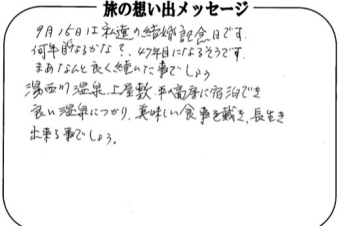 旅の想い出メッセージ
9月15日は私達の結婚記念日です。
何年目なるかな?、47年目になるそうです。
まあなんと良く続いた事でしょう
湯西川温泉、上屋敷 平の高房に宿泊でき
良い温泉につかり、美味しい食事を戴き、長生き
出来る事でしょう。